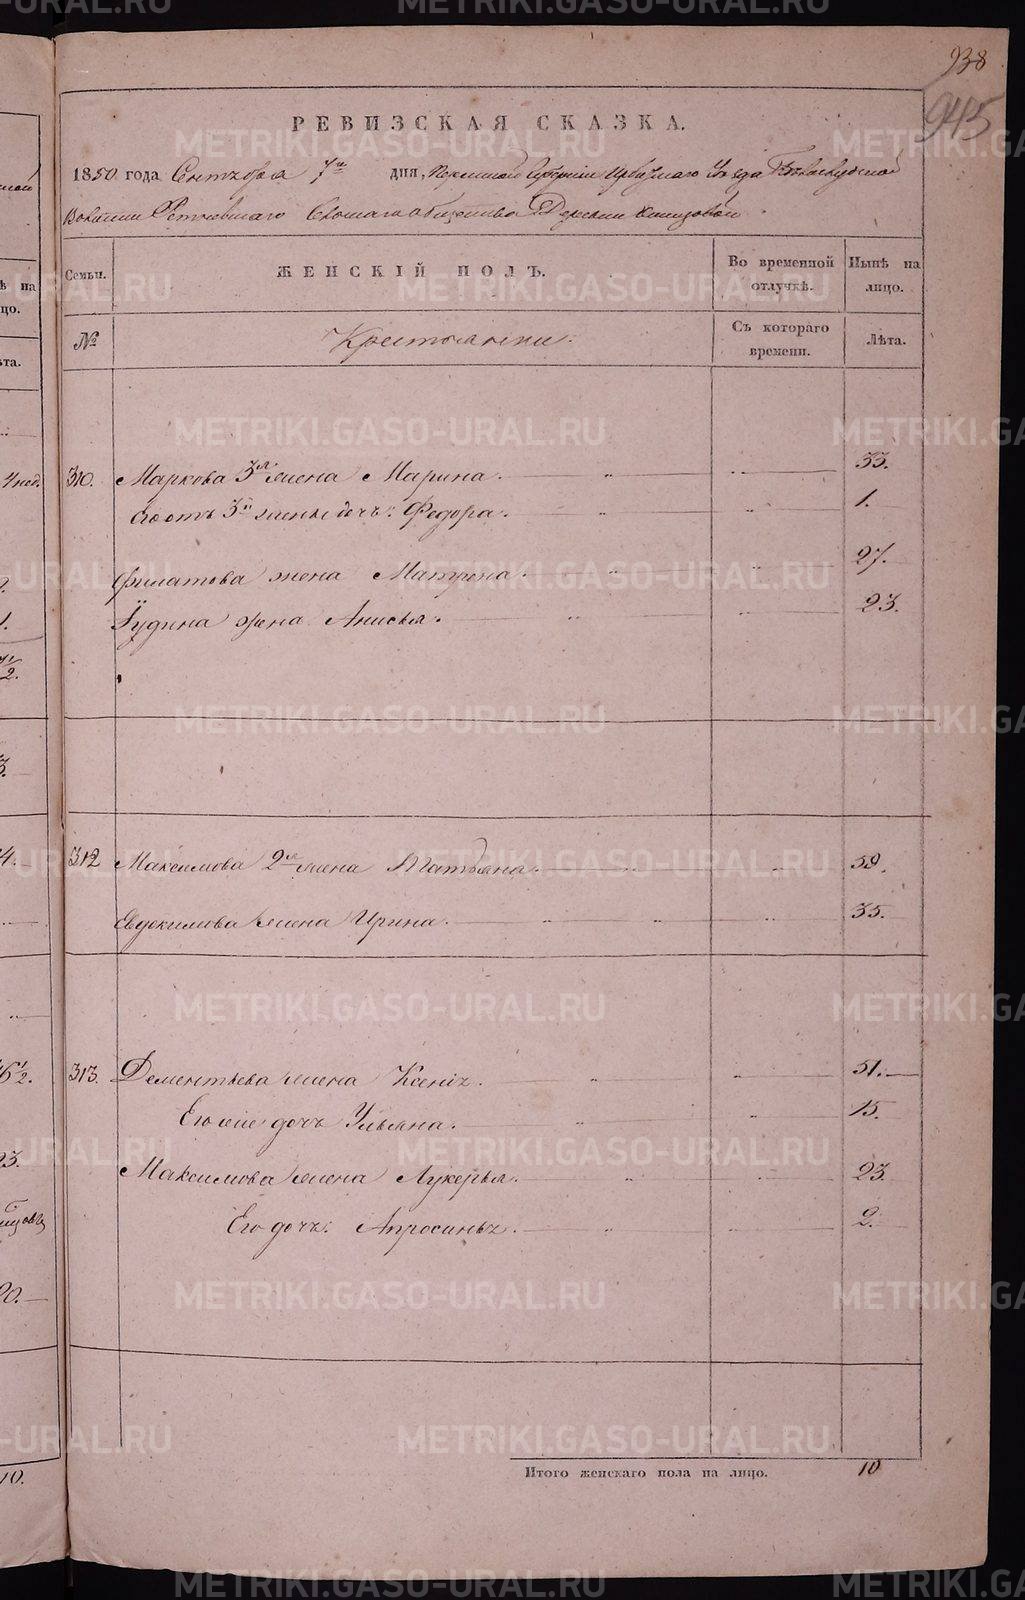 938
945
РЕВИЗСКАЯ СКАЗКА.
1850 года Сентября 7го дня, Пермской Губернии Ирбитскаго Уезда
Волости Сельскаго общества Деревни
Семьи. ЖЕНСКІЙ ПОЛЪ. Во временной отлучкѣ. Нынѣ на лицо.
№ Крестьянки. Съ котораго времени. Лѣта.
310. Маркова 3я жена Марина. 33.
Его отъ 3й жены дочь: Федора. 1.
Филатова жена Матрена. 27.
Іудина жена Анисья. 23.
312 Максимова 2я жена Татьяна. 59.
Евдокимова жена Ирина. 35.
313. Дементьева жена Ксенія. 51.
Его дочь Ульяна. 15.
Максимова жена Лукерья. 23.
Его дочь: Апросинья. 2.
Итого женскаго пола на лицо. 10
METRIKI.GASO-URAL.RU